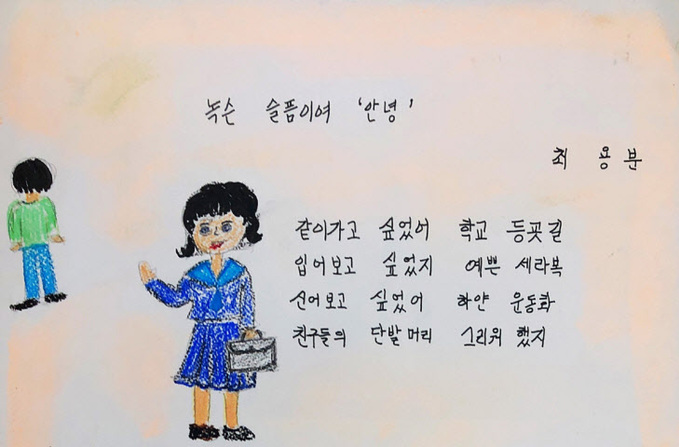 녹슨 슬픔이여 '안녕'
최 용 분
같이가고 싶었어 학교 등굣길
입어보고 싶었지 예쁜 세라복
신어보고 싶었어 하얀 운동화
친구들의 단발머리 그리워 했지